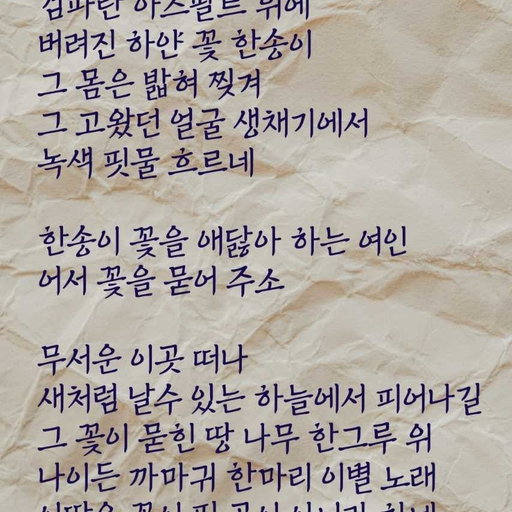 검파란 아스팔트 위에
버려진 하얀 꽃 한송이
그 몸은 밟혀 찢겨
그 고왔던 얼굴 생채기에서
녹색 핏물 흐르네
한송이 꽃을 애닳아 하는 여인
어서 꽃을 묻어 주소
무서운 이곳 떠나
새처럼 날수 있는 하늘에서 피어나길
그 꽃이 묻힌 땅 나무 한그루 위
나이든 까마귀 한마리 이별 노래
이땅은 꽃이 필 곳이 아니라 하네